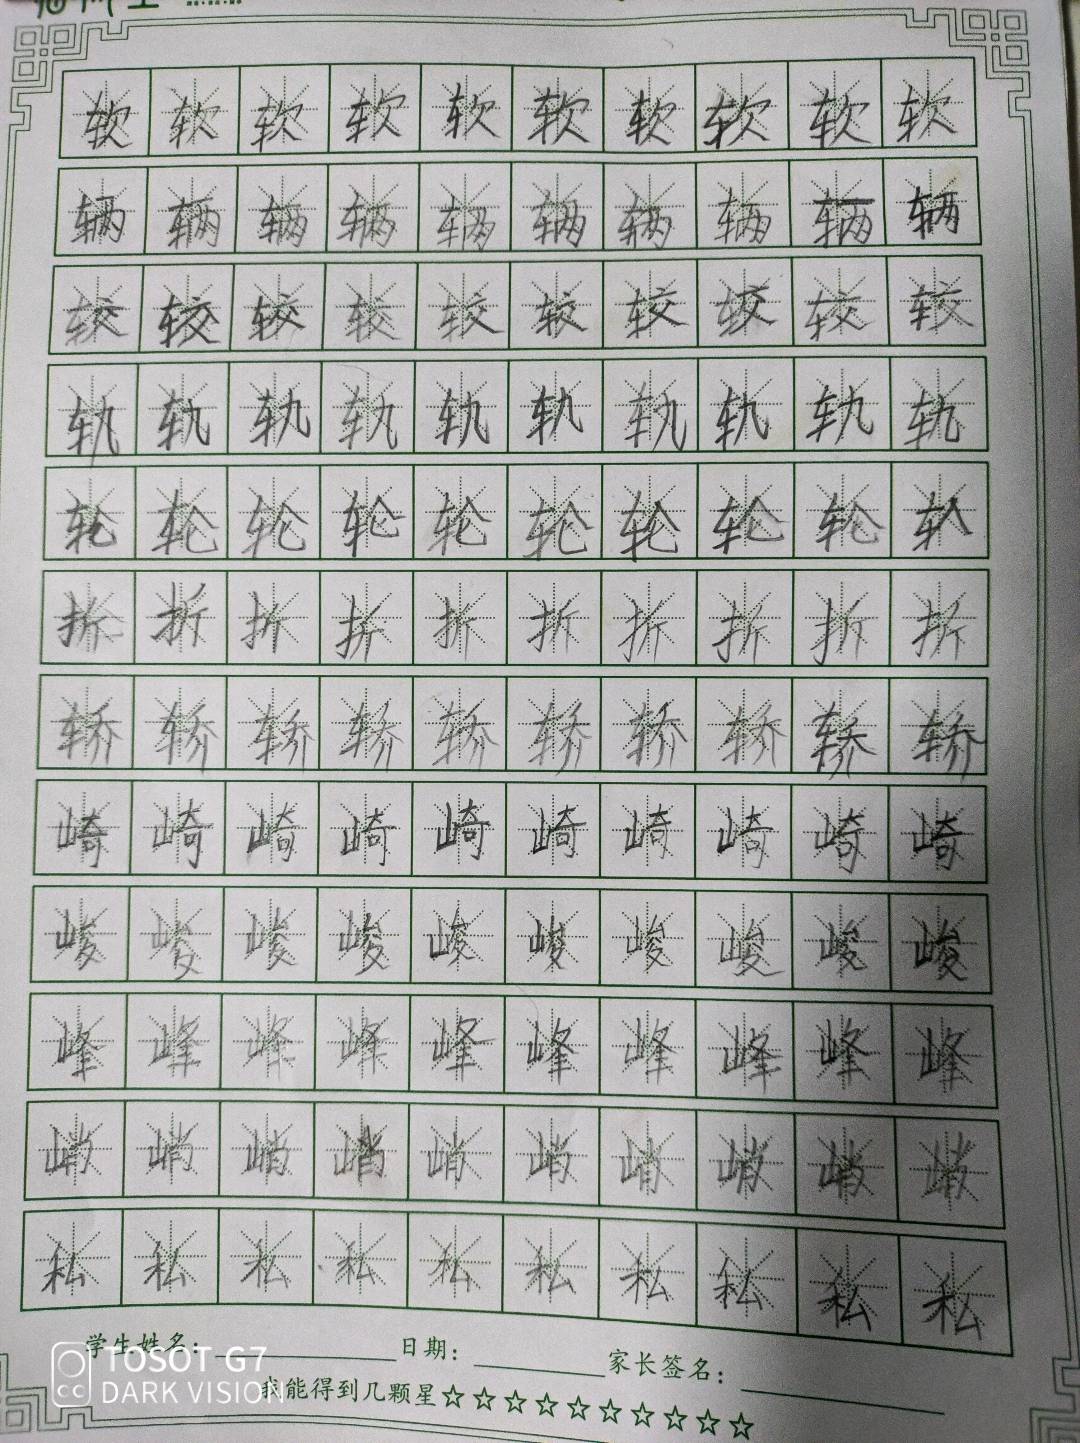 软软软软软软软软软软
辆辆辆辆辆辆辆辆辆辆
较较较较较较较较较较
轨轨轨轨轨轨轨轨轨轨
轮轮轮轮轮轮轮轮轮
折折折折折折折折折折
轿轿轿轿轿轿轿轿轿轿
崎崎崎崎崎崎崎崎崎崎
峻峻峻峻峻峻峻峻峻峻
峰峰峰峰峰峰峰峰峰峰
峭峭峭峭峭峭峭峭峭峭
私私私私私私私私私私
学生姓名: 日期: 家长签名:
我能得到几颗星☆☆☆☆☆☆☆☆☆☆
TOSOT G7
DARK VISION